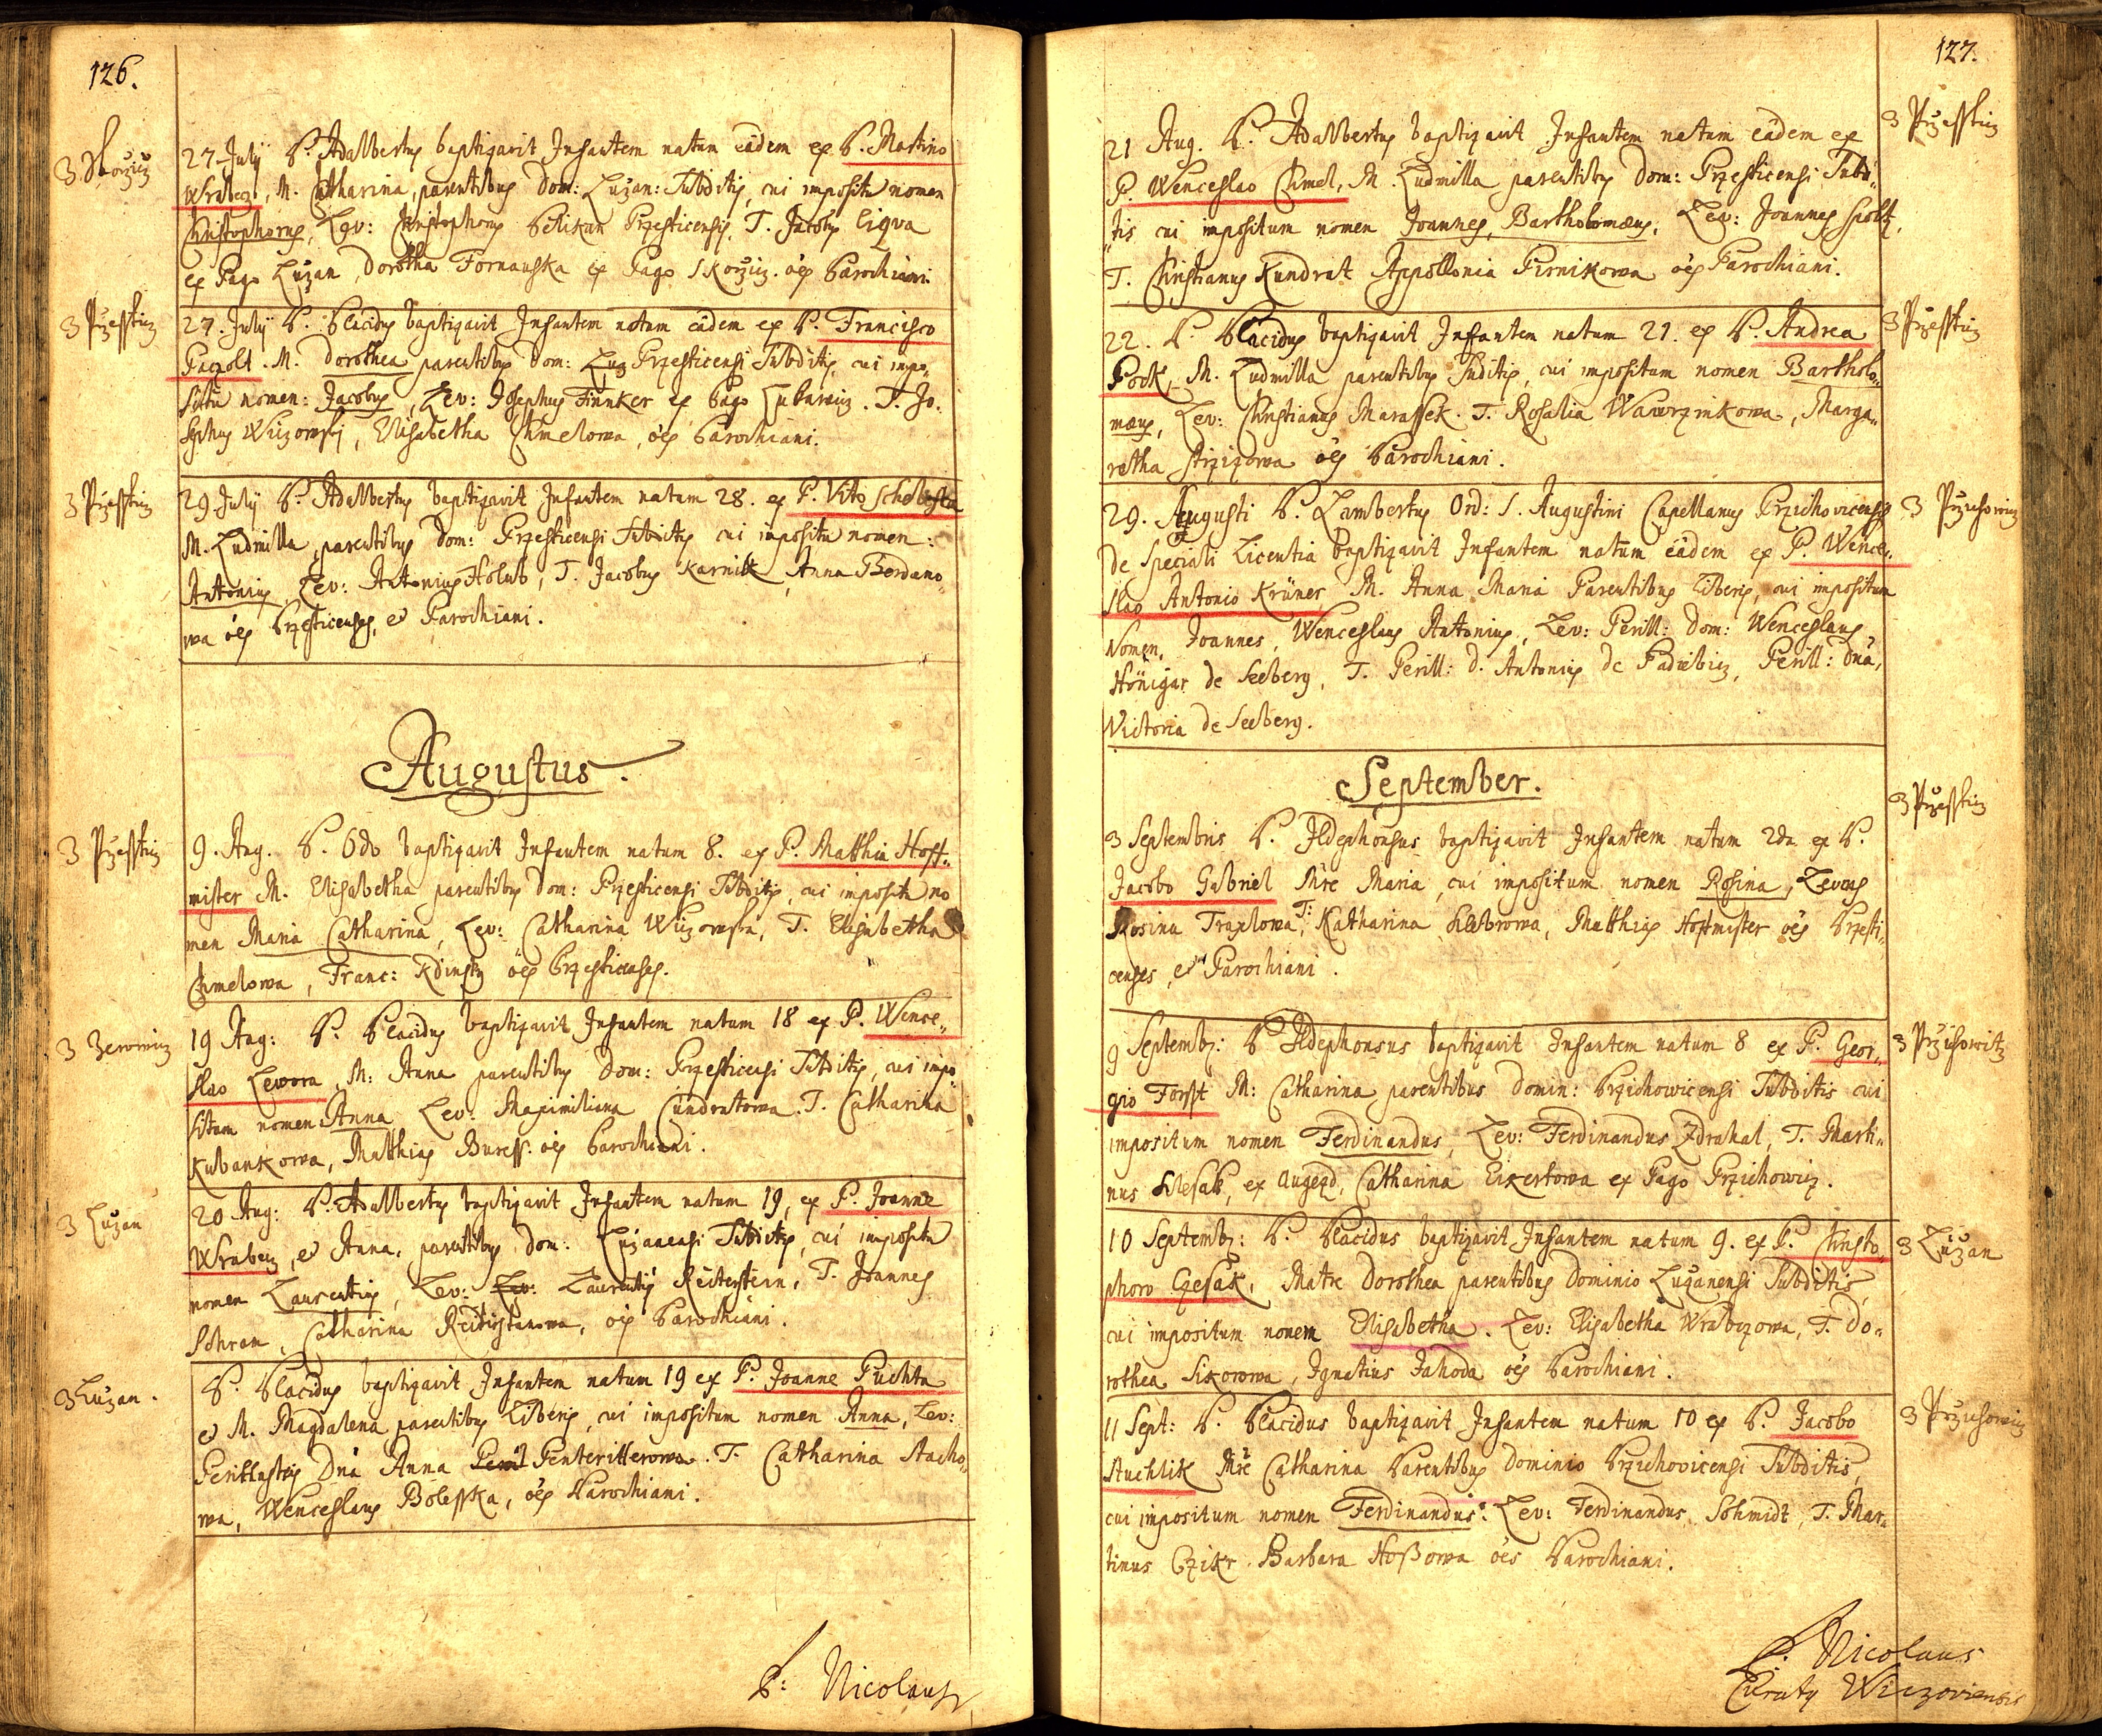 126.
3. Skorziz
27 July P. Adalbertus baptizavit Infantem natum eâdem ex P. Martino
Wrabecz, M. Catharina, parentibus Dom: Luzan: Subditis, cui impositu nomen
Christophorus, Lev: Christophorus Pelikan Przesticensis, T. Jacobus Liqva
ex Pago Luzan, Dorotha Fornauska ex Pago Skorziz. oes Parochiani.
3 Przesstiz
27. July P. Placidus baptizavit Infantem natum eâdem ex P. Francisco
Paczolt. M. Dorothea parentibus Dom: Luz Przesticensi Subditis, cui impo„
situ nomen: Jacobus, Lev: Josephus Finnker ex Pago Lukawiz. T. Jo„
sephus Wiizowsky, Elisabetha Chmelowa, oes Parochiani.
3 Przesstiz
29 July P. Adalbertus baptizavit Infantem natum 28. ex P. Vito
M. Ludmilla, parentibus Dom: Przesticensi Subditis cui impositu nomen:
Antonius, Lev: Antonius Holub, T. Jacobus Karnitk, Anna Bordano„
wa oes Przesticenses, et Parochiani.
Augustus.
3 Przesstiz
9. Aug. P. Odo baptizavit Infantem natum 8. ex P. Matthia Hoff„
mister M. Elisabetha parentibus Dom: Przesticensi Subditis, cui impositu no
men Maria Catharina, Lev: Catharina Wiizowska, T. Elisabetha
Chmelowa, Franc: Kdinsky oes Przesticenses.
3 Zerowiz
19 Aug: P. Placidus baptizavit Infantem natum 18 ex P. Wence„
slao Lewora, M: Anna parentibus Dom: Przesticensi Subditis, cui impo„
situm nomen Anna, Lev: Maximiliana Cundratowa. T. Catharina
Kubankowa, Matthias Buress. oes Parochiani.
3 Luzan
20 Aug: P. Adalbertus baptizavit Infantem natum 19, ex P. Joanne
Wrabecz, et Anna, parentibus Dom: Luzanensi Subditis, cui impositu
nomen Laurentius, Lev: Lev: Laurentius Reiterstein, T. Joannes
Schram, Catharina, oes Parochiani.
3 Luzan.
P. Placidus baptizavit Infantem natum 19 ex P. Joanne Puchta
et M. Magdalena parentibus Liberis, cui impositum nomen Anna, Lev:
Perillustris Dna Anna Penteritterowa. T. Catharina Stacho„
wa, Wenceslaus Bolesska, oes Parochiani.
P: Nicolaus
127.
3 Przesstiz
21 Aug. P. Adalbertus baptizavit Infantem natum eâdem ex
P. Wenceslao Chmel, M. Ludmilla parentibus Dom: Przesticensi Subdi„
„tis cui impositum nomen Joannes, Bartholomæus, Lev: Joannes Spolt,
T. Christianus Kundrat Appollonia Pirnikowa oes Parochiani.
3 Przesstiz
22. P. Placidus baptizavit Infantem natum 21. ex P. Andrea
Pock, M. Ludmilla parentibus Suditis, cui impositum nomen Bartholo„
mæus, Lev: Christianus Marassek. T. Rosalia Wawrzinkowa, Marga„
retha Strzizowa oes Parochiani.
3 Przichowiz
29. Augusti P. Lambertus Ord: S. Augustini Capellanus Przichovicensis
de Speciali Licentia baptizavit Infantem natum eâdem ex P. Wence„
slao Antonio Krüner, M. Anna Maria Parentibus Liberis, cui impositum
Nomen, Joannes, Wenceslaus Antonius, Lev: Perill: Dom: Wenceslaus
Hönigar de Seeberg, T. Perill: D. Antonius de Fadiebicz, Perill: Dna,
Victoria de Seeberg.
September.
3 Przesstiz
3 Septembris P. Ildephonsus baptizavit Infantem natum 2da ex P.
Jacobo Gabriel Mre Maria, cui impositum nomen Rosina, Levans
Rosina Traxlowa, T: Katharina Schebrowa, Matthias Hoffmister oes Przesti„
censes, et Parochiani.
3 Przichowitz
9 Septemb: P Ildephonsus baptizavit Infantem natum 8 ex P. Geor„
gio Forsst M: Catharina parentibus Domin: Przichowicensi Subditis cui
impositum nomen Ferdinandus, Lev: Ferdinandus Zdrahal, T. Marti„
nus Klesak, ex Augezd, Catharina Eikertowa ex Pago Przichowiz.
3 Luzan
10 Septemb: P. Placidus baptizavit Infantem natum 9. ex P. Christo„
phoro Czesak, Matre Dorothea parentibus Dominio Luzanensi Subditis,
cui impositum nomen Elisabetha. Lev: Elisabetha Wrabczowa, T. Do„
rothea Sikorowa, Ignatius Jahoda oes Parochiani.
3 Przichowiz
11 Sept: P. Placidus baptizavit Infantem natum 10 ex P. Jacobo
Stuchlik Mre Catharina Parentibus Dominio Przichovicensi Subditis,
cui impositum nomen Ferdinandus. Lev: Ferdinandus Schmidt, T. Mar„
tinus Czikr Barbara Hoßowa oes Parochiani.
P. Nicolaus
Curatus Wiczoviensis